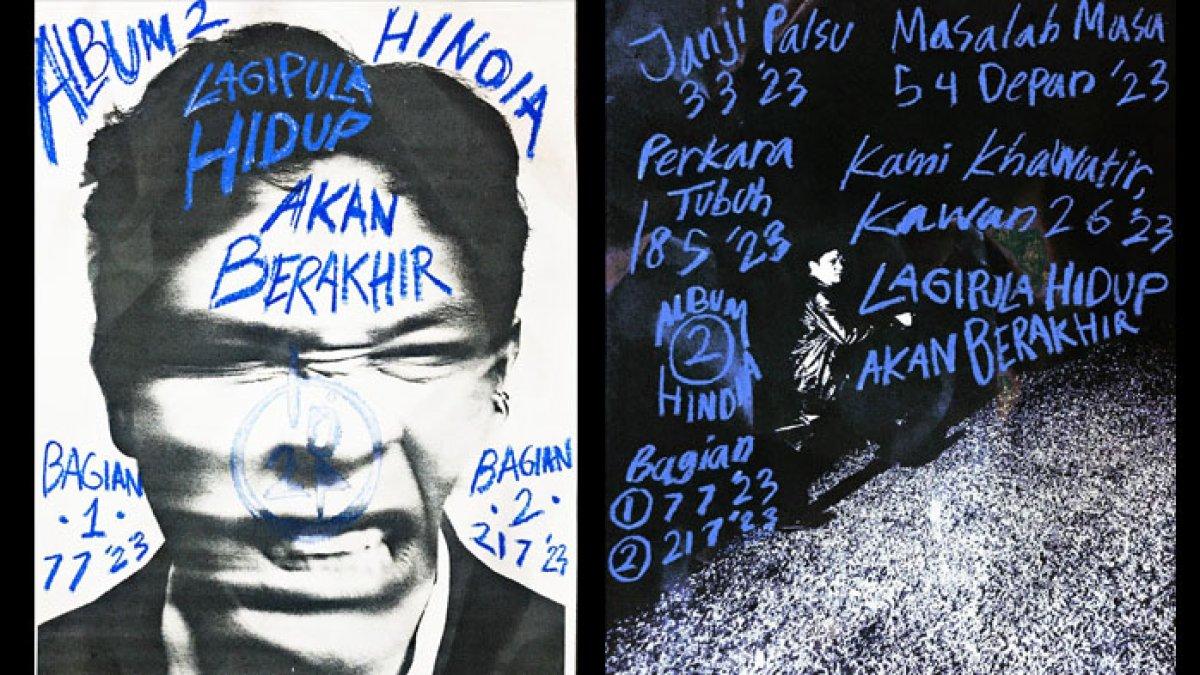 ALBUM 2
HINDIA
LAGIPULA
HIDUP
AKAN
BERAKHIR
BAGIAN
·1·
7 7 '23
BAGIAN
·2·
21 7 '23
Janji Palsu
3 3 '23
Masalah Masa
5 4 Depan '23
Perkara
Tubuh
18 5 '23
Kami Khawatir,
Kawan 2 6 '23
LAGIPULA HIDUP
AKAN BERAKHIR
ALBUM
2
HINDIA
Bagian
1 7 7 '23
2 21 7 '23